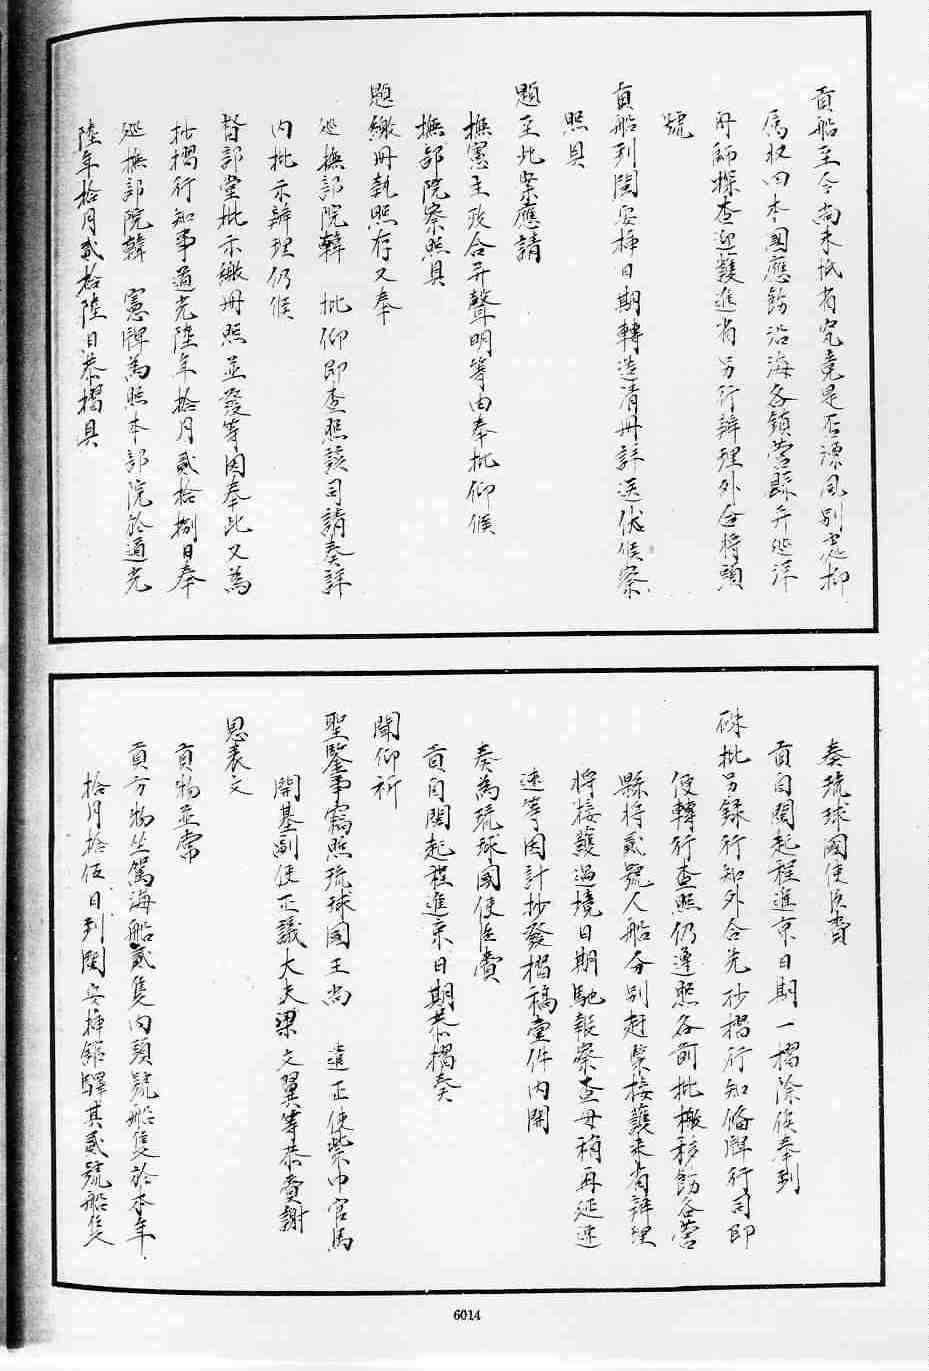 貢船至今尚未抵省究竟是否漂風別處抑
馬收回本國應飭沿海各鎮營縣并巡洋
舟師探查迎護進省另行辦理外合將頭
號
貢船到閩安插日期轉造清冊詳送伏候察
照具
題至此案應請
撫憲主政合并聲明等由奉批仰候
撫部院察照具
題繳冊執照存又奉
巡撫部院韓　批仰即查照該司請奏詳
內批示辦理仍候
督部堂批示繳冊照並發等因奉此又為
抄摺行知事道光陸年拾月貳拾捌日奉
巡撫部院韓　憲牌為照本部院於道光
陸年拾月貳拾陸日恭摺具
奏琉球國使臣賫
貢自閩起程進京日期一摺除俟奉到
硃批另錄行知外合先抄摺行知備牌行司即
便轉行查照仍遵照各前批檄移飭各營
縣將貳號人船分別赶緊接護來省辦理
將接護過境日期馳報察查毋稍再延速
速等因計抄發摺稿壹件內開
奏為琉球國使臣賫
貢自閩起程進京日期恭摺奏
聞仰祈
聖鑒事竊照琉球國王尚　遣正使紫巾官馬
開基副使正議大夫梁文翼等恭賫謝
恩表文
貢物並常
貢方物坐駕海船貳隻內頭號船隻於本年
拾月拾伍日到閩安插館驛其貳號船隻
6014